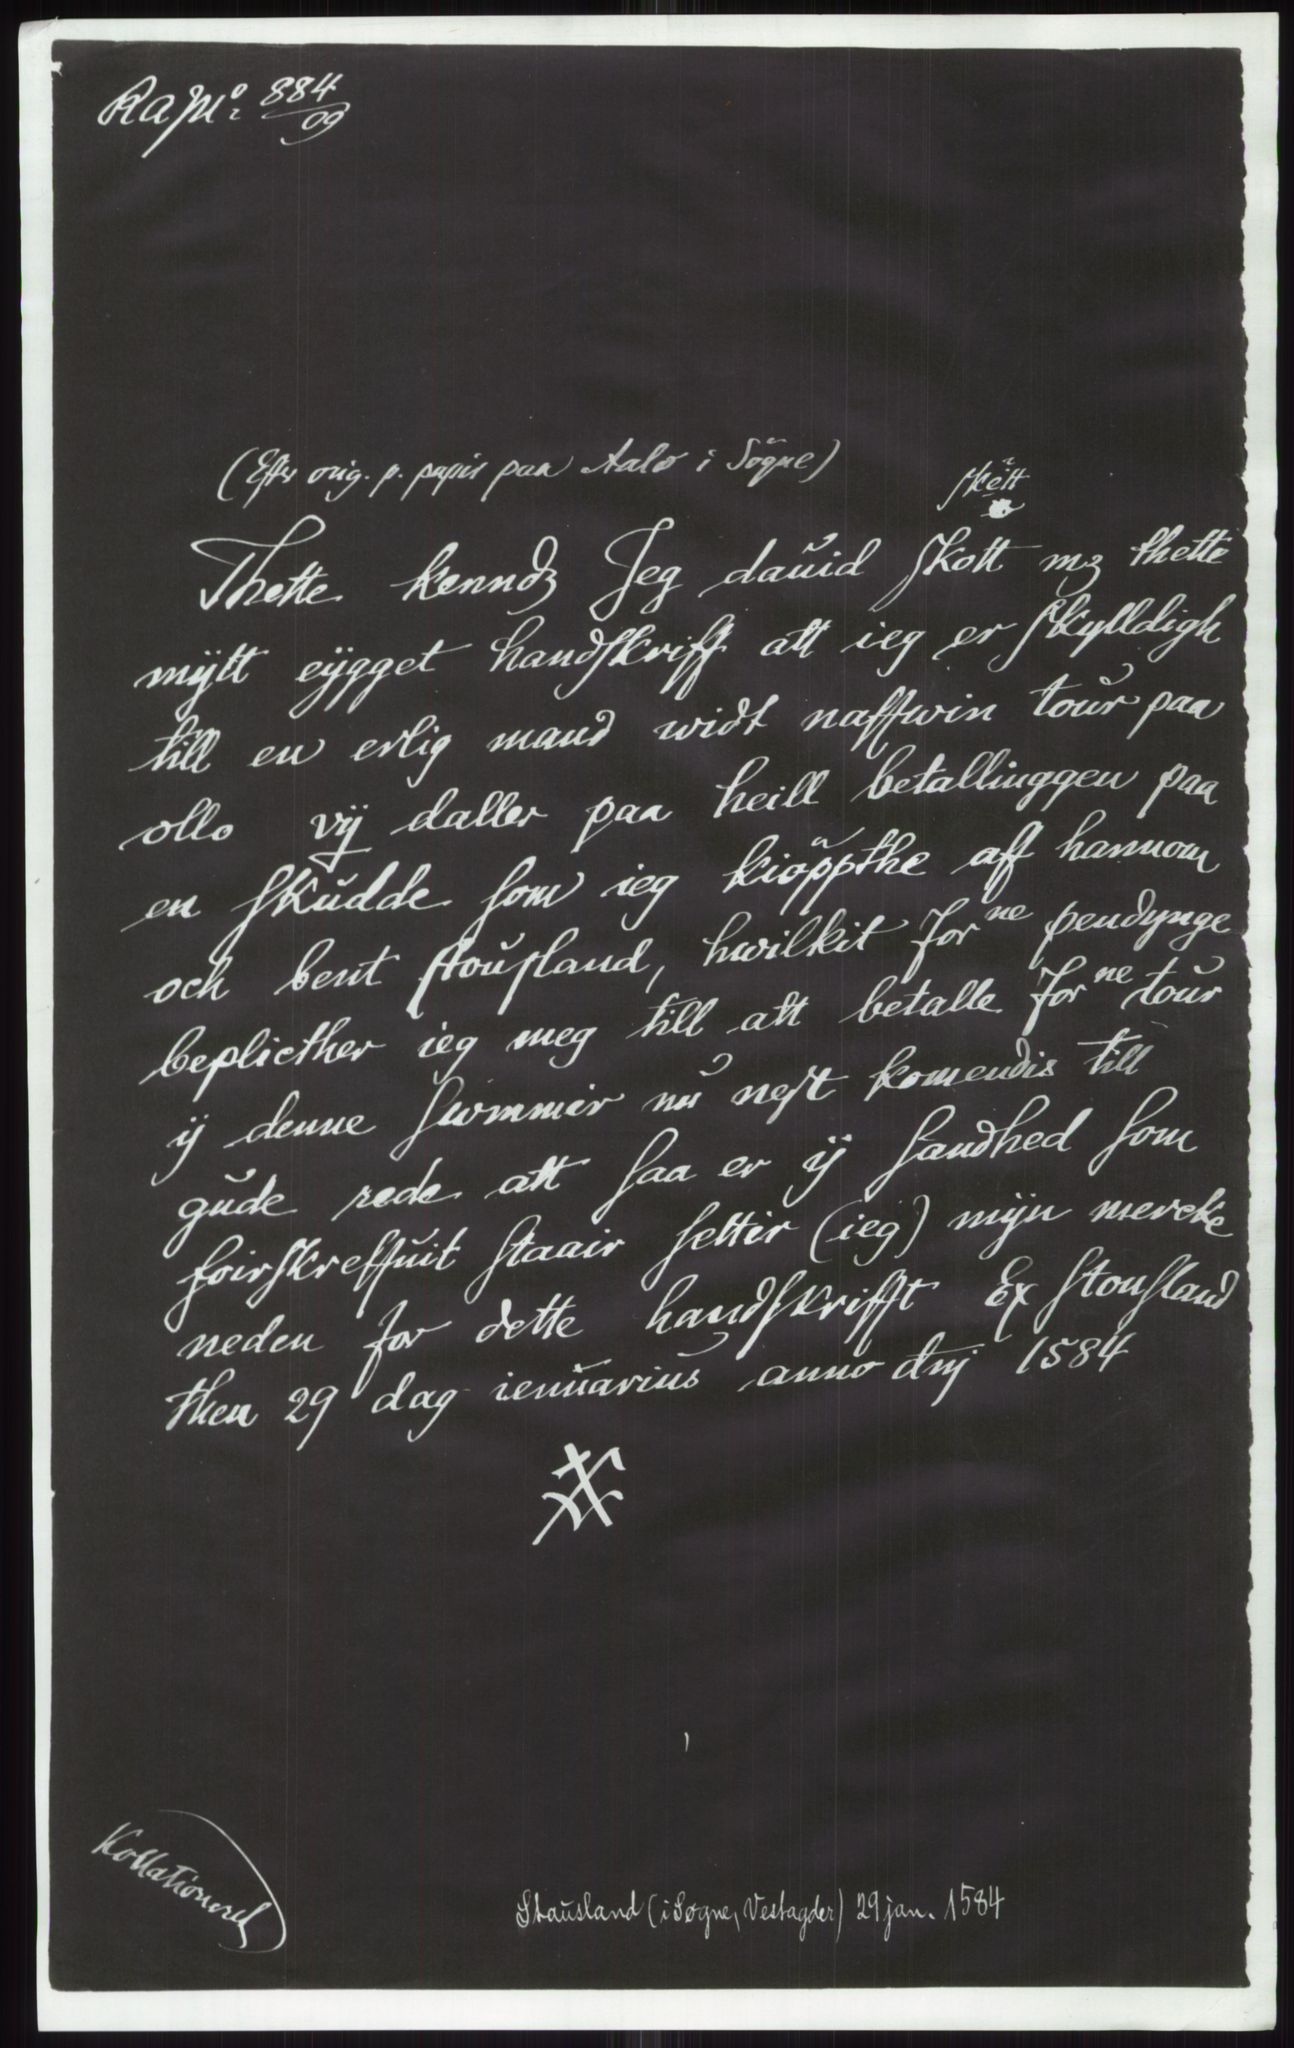 RA No 884/09
(Efter orig. p. papir paa Aalo i Sögne)
skett
Thette kenndz Jeg dauid skott mz thette
mytt eygget handskriff att ieg er skylldigh
till en erlig mand widt naffwin tour paa
ollo vij daller paa heill betallinggen paa
en skudde som ieg kiöppthe aff hannom
och bent stousland, hwilkit forne pendynge
beplicther ieg meg till att betalle forne tour
ÿ denne swmmer nu nest komendis till
gude rede att saa er ÿ sandhed som
foirskreffuit staair settir (ieg) mÿn mercke
neden for dette handskrifft Ex stousland
then 29 dag ienuarius anno dnj 1584
Kollationeret
Stausland (i Søgne, Vestagder) 29 jan. 1584